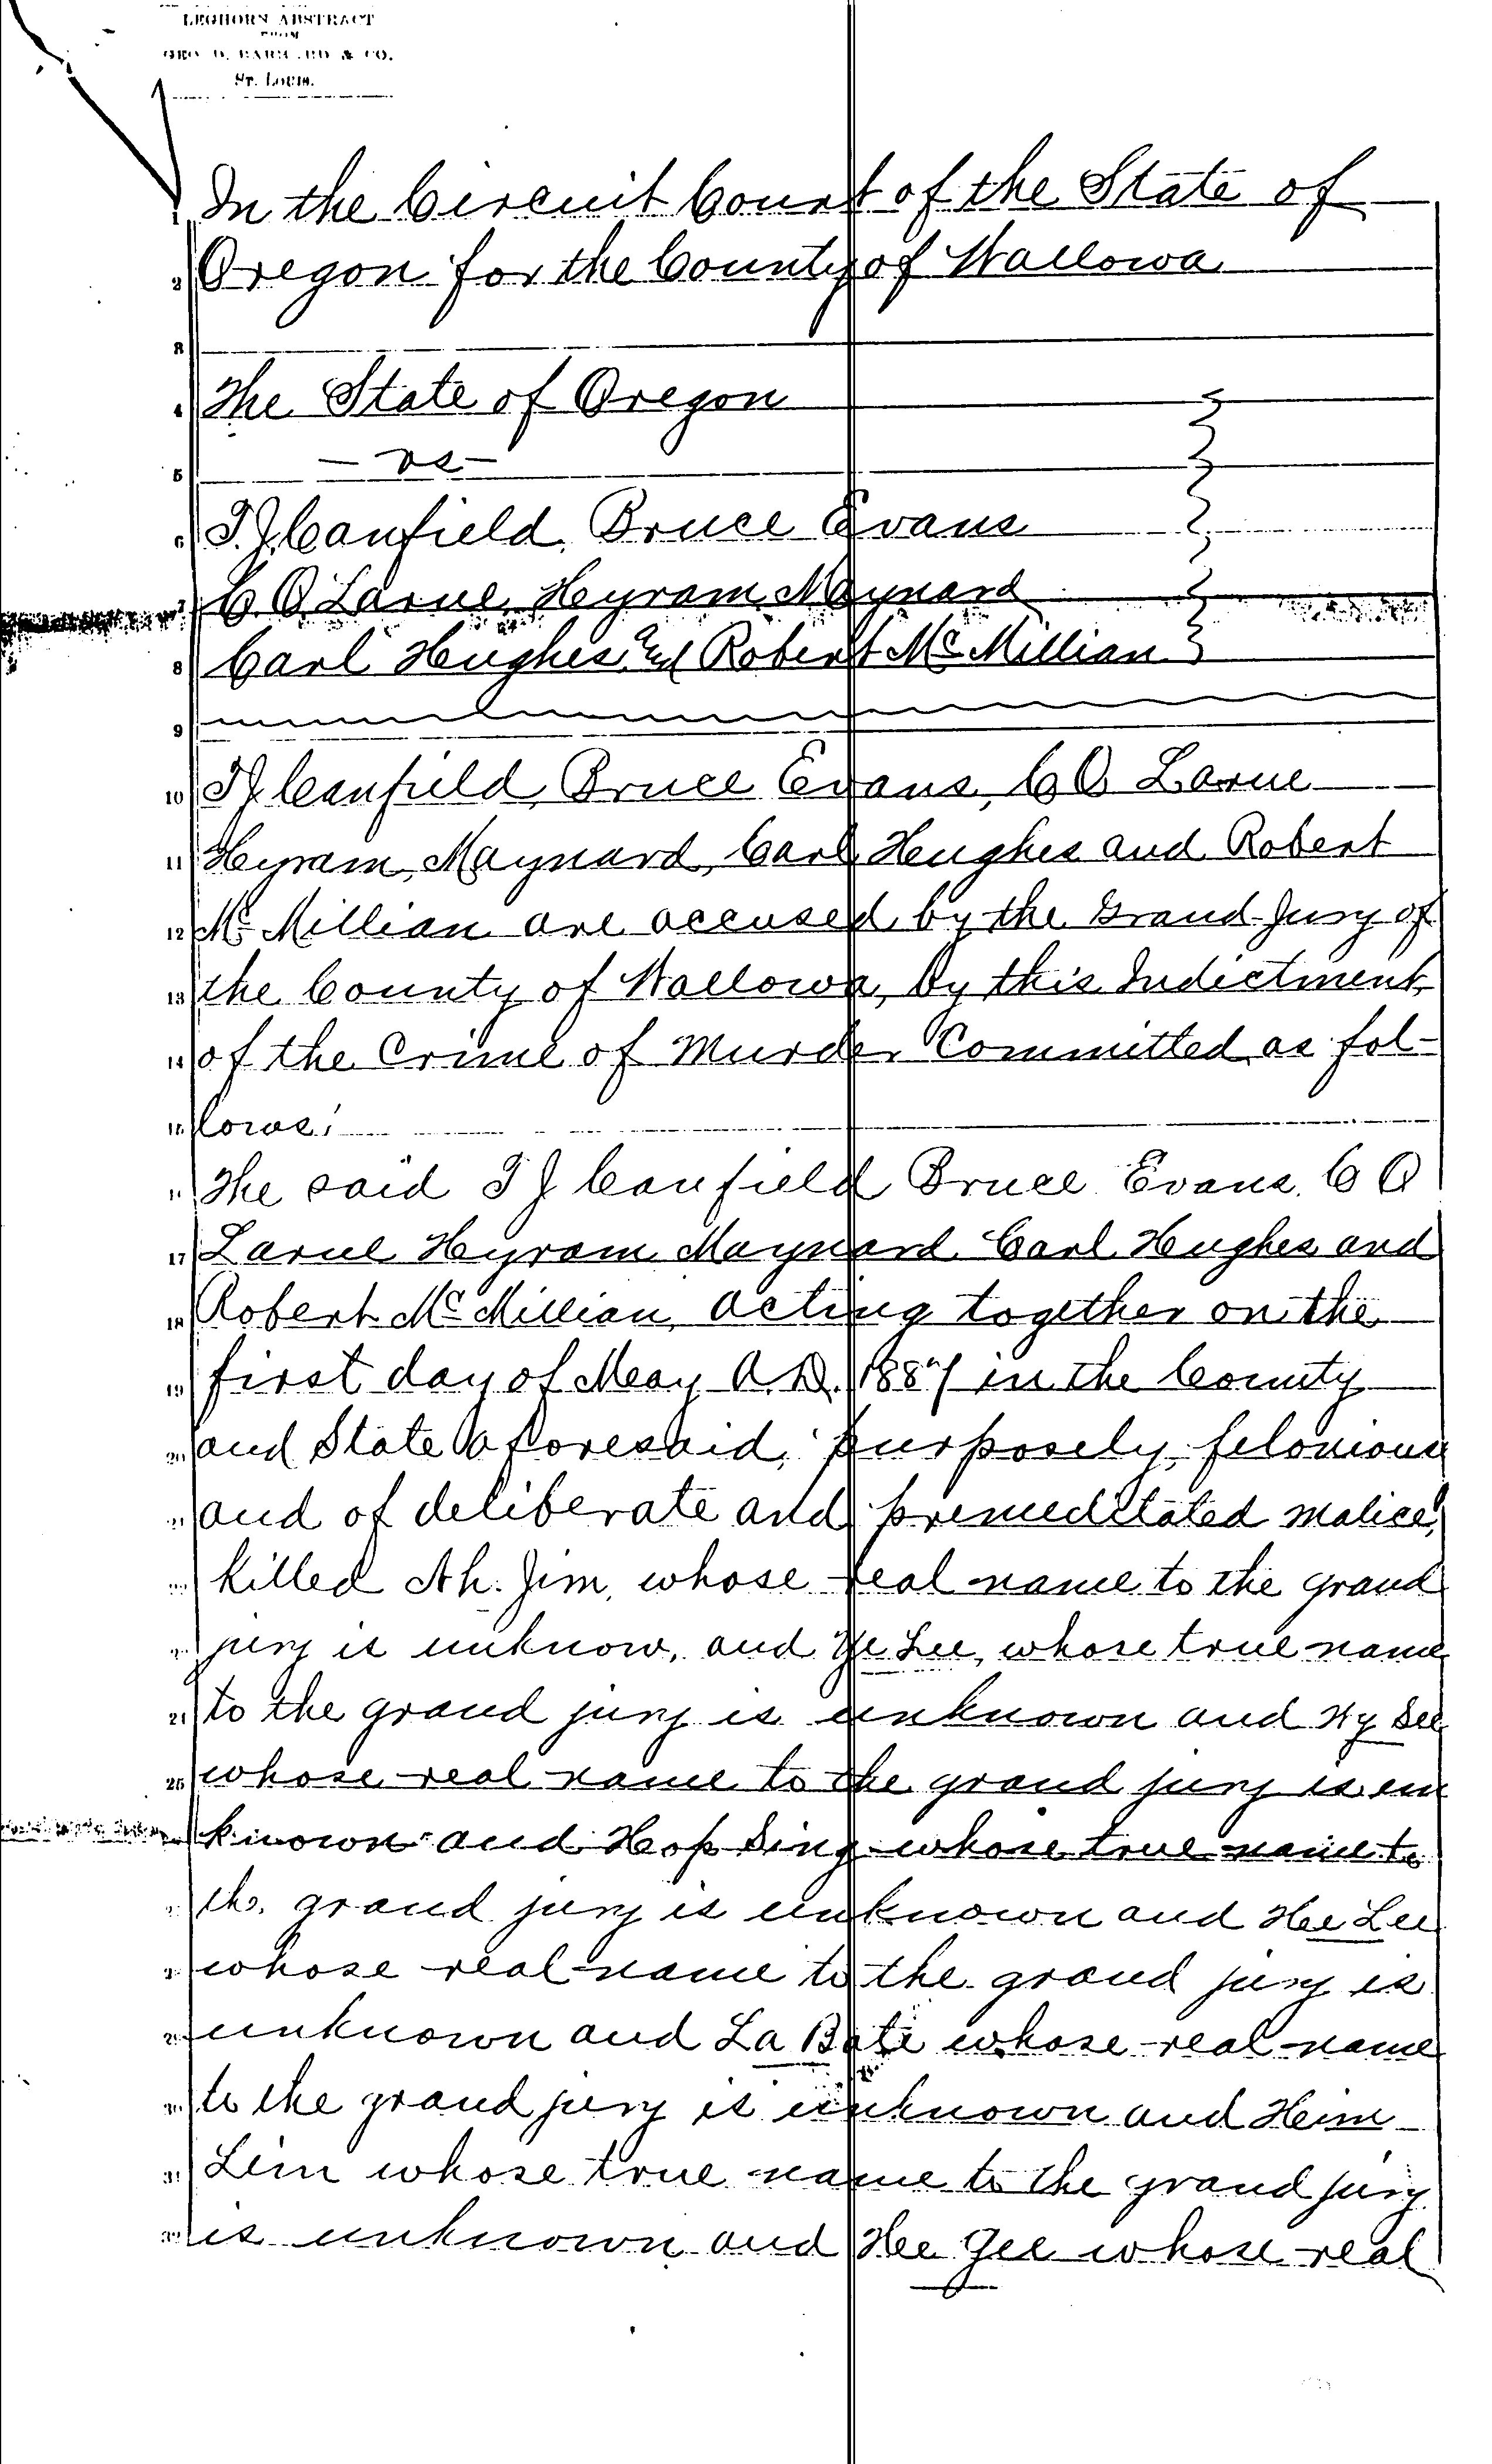 LEGHORN ABSTRACT
FROM
GEO. D. BARNARD & CO.
ST. LOUIS.
1 In the Circuit Court of the State of
2 Oregon for the County of Wallowa
3
4 The State of Oregon
5 - vs -
6 T. J. Canfield, Bruce Evans
7 C O Larue, Hyram Maynard
8 Carl Hughes and Robert McMillian
9
10 T J Canfield, Bruce Evans, C O Larue
11 Hyram, Maynard, Carl Hughes and Robert
12 McMillian are accused by the Grand Jury of
13 the County of Wallowa, by this Indictment
14 of the Crime of Murder Committed as fol-
15 lows:
The said T J Canfield Bruce Evans. C O
17 Larue Hyram Maynard Carl Hughes and
18 Robert McMillian, acting together on the
19 first day of May A.D. 1887 in the County
and State aforesaid, purposely, felonious
and of deliberate and premeditated malice,
killed Ah. Jim, whose real name to the grand
jury is unknow, and Ye Lee, whose true name
24 to the grand jury is unknown and Wy See
25 whose real name to the grand jury is un
known and Hop Sing whose true name to
the grand jury is unknown and Hee Lee
whose real name to the grand jury is
unknown and La Bate whose real name
to the grand jury is unknown and Heim
31 Lim whose true name to the grand jury
is unknown and Hee Gee whose real